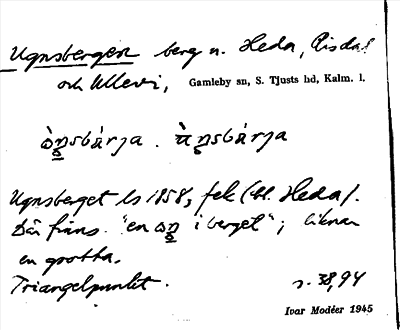 Ugnsbergen berg n. Heda, Risdal
och Ullevi, Gamleby sn, S. Tjusts hd, Kalm. l.
Ugnsberget ls 1858, fek (bl. Heda).
Där finns "en ωn i berget"; liknar
en grotta.
Triangelpunkt. r. 38,94
Ivar Modéer 1945